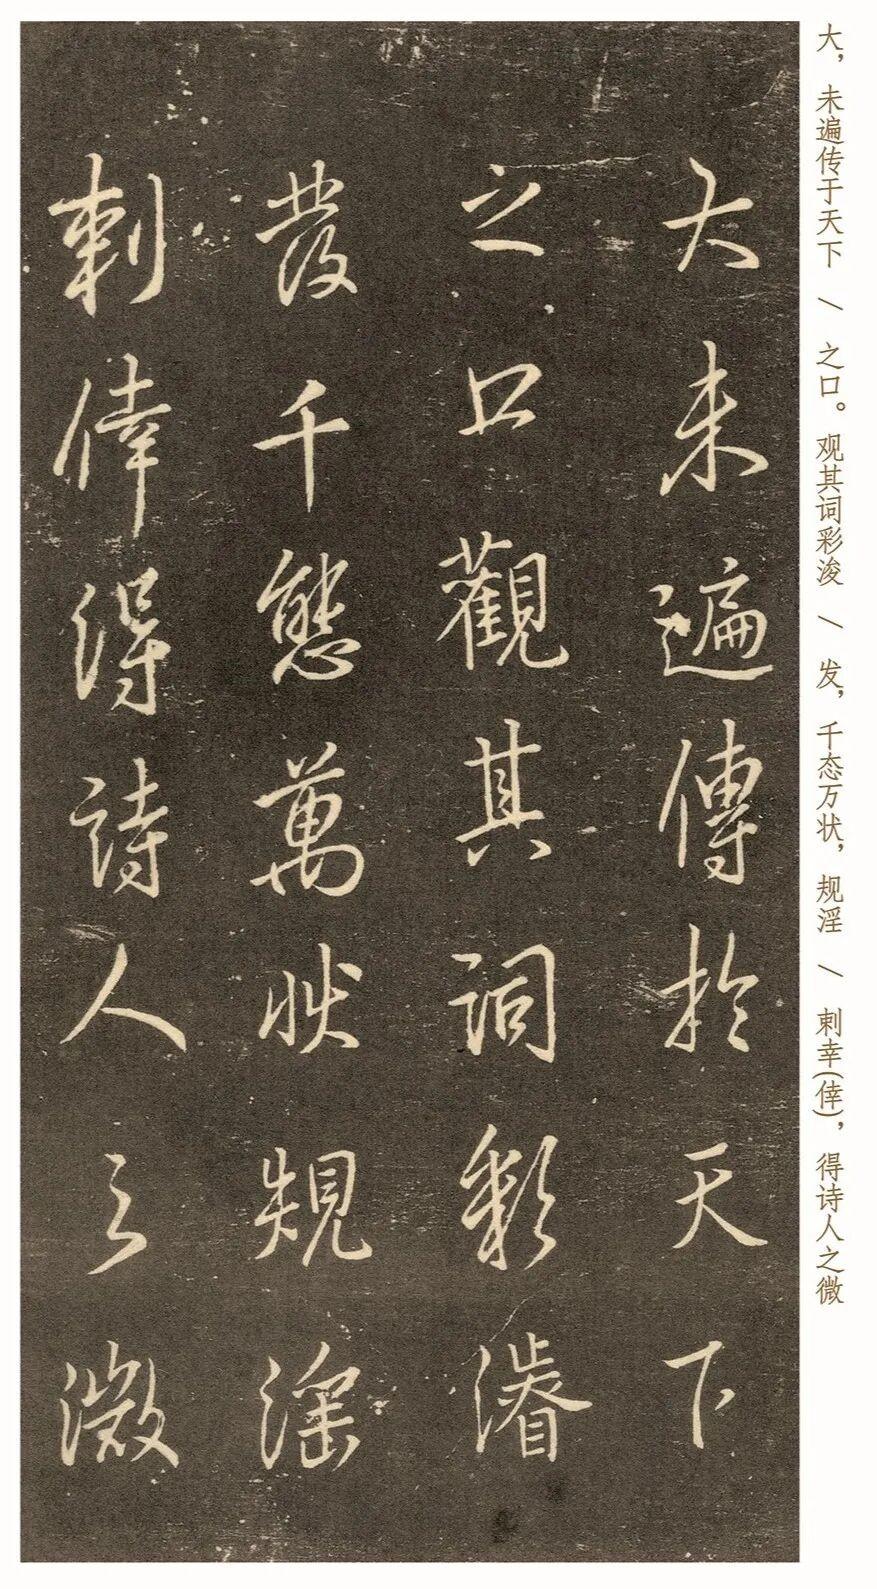 大，未遍传于天下 \ 之口。观其词彩浚 \ 发，千态万状，规淫 \ 刺幸(倖)，得诗人之微
大未遍傳於天下
之口觀其詞彩濬
發千態萬狀規淫
刺倖得詩人之微